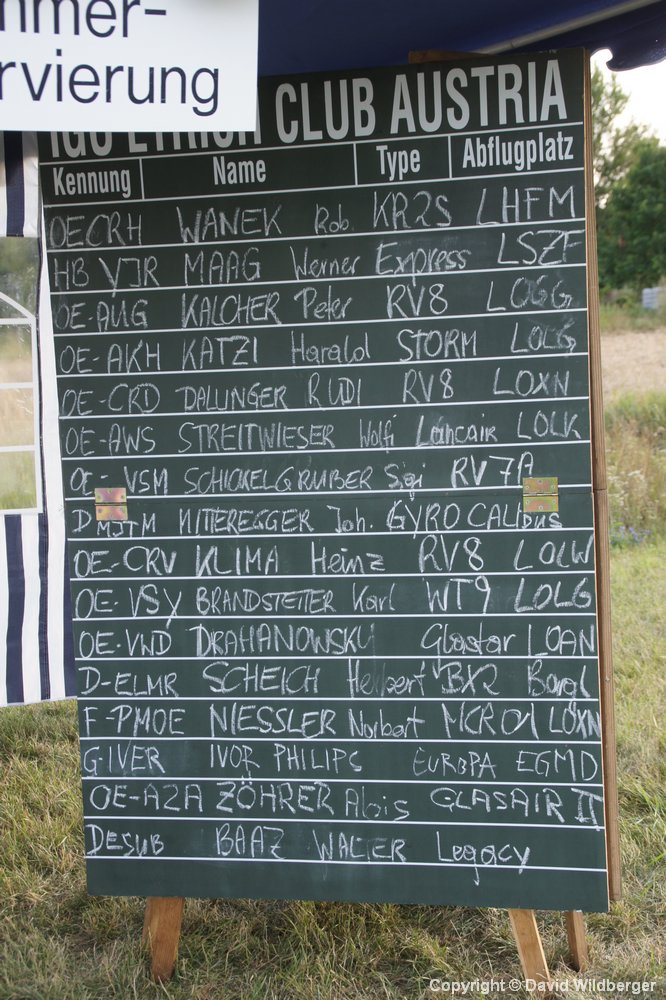 mmer-
rvierung
IGO ETRICH CLUB AUSTRIA
Kennung Name Type Abflugplatz
OE CRH WANEK Rob. KR2S LHFM
HB YJR MAAG Werner Express LSZF
OE-AUG KALCHER Peter RV8 LOGG
OE-AKH KATZI Harald STORM LOLG
OE-CRD DALLINGER RUDI RV8 LOXN
OE-AWS STREITWIESER Wolfi Lancair LOLK
OE-VSM SCHICKELGRUBER Sigi RV7A
D MJTM MITTEREGGER Joh. GYRO CALIDUS
OE-CRV KLIMA Heinz RV8 LOLW
OE-VSY BRANDSTETTER Karl WT9 LOLG
OE-VWD DRAHANOWSKY Glastar LOAN
D-ELMR SCHEICH Herbert BX2
F-PMOE NIESSLER Norbert MCR01 LOXN
G.IVER IVOR PHILIPS EUROPA EGMD
OE-A2A ZÖHRER Alois GLASAIR II
DESUB BAAZ WALTER Legacy
Copyright © David Wildberger